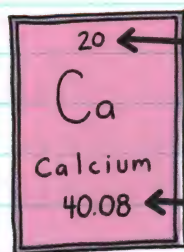 20
Ca
Calcium
40.08